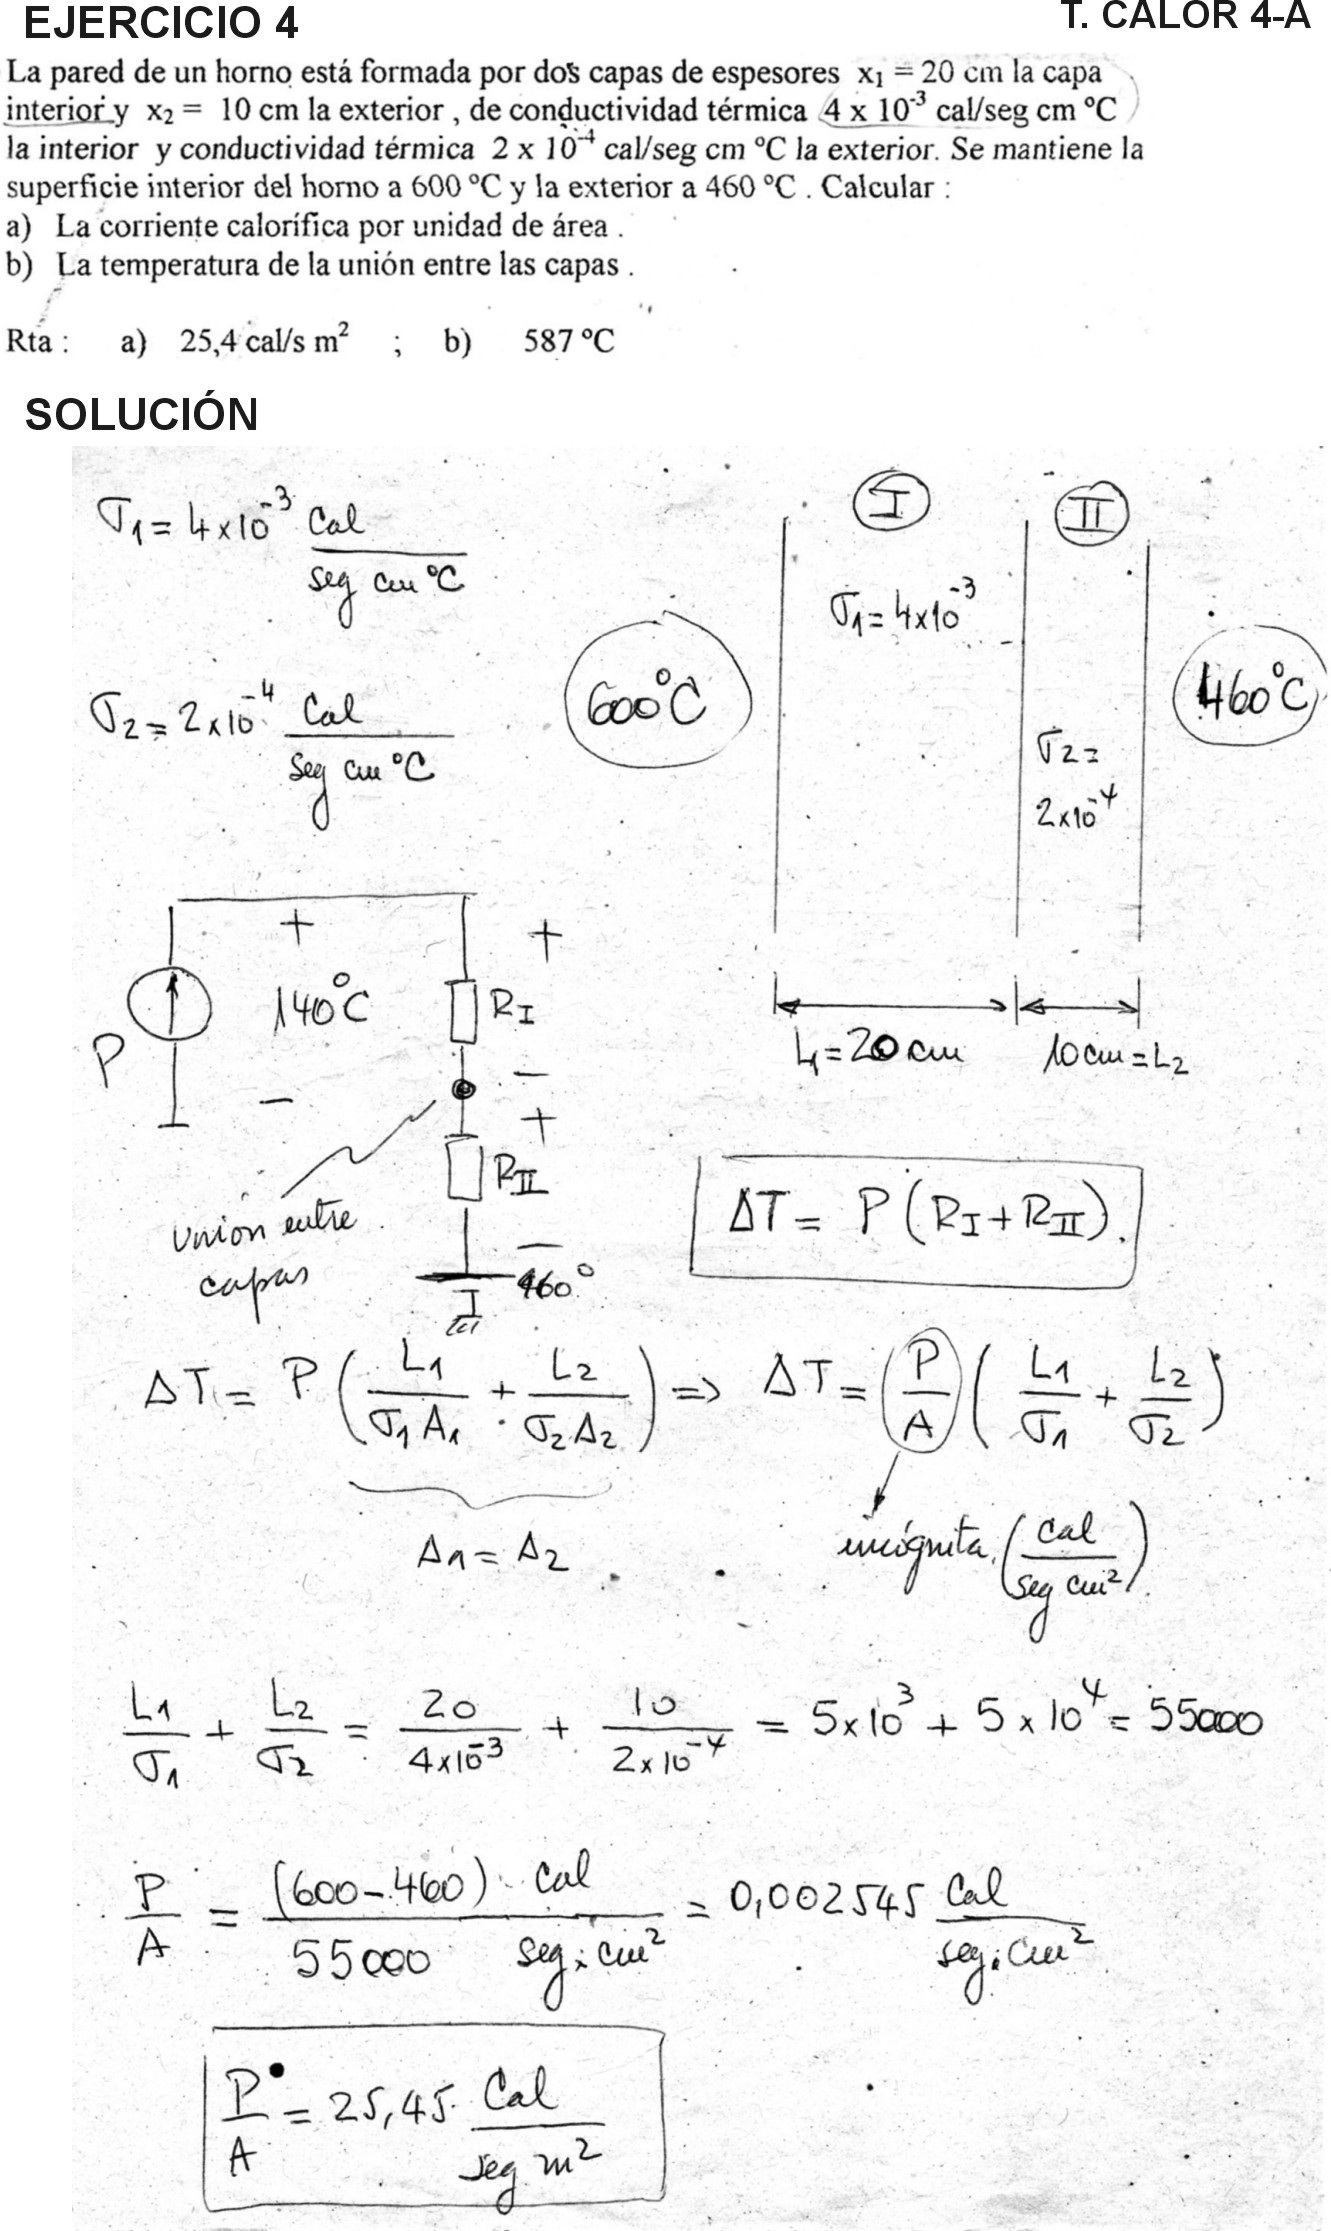 EJERCICIO 4
T. CALOR 4-A
La pared de un horno está formada por dos capas de espesores x₁ = 20 cm la capa
interior y x₂ = 10 cm la exterior , de conductividad térmica 4 x 10⁻³ cal/seg cm ºC
la interior y conductividad térmica 2 x 10⁻⁴ cal/seg cm ºC la exterior. Se mantiene la
superficie interior del horno a 600 ºC y la exterior a 460 ºC . Calcular :
a) La corriente calorífica por unidad de área .
b) La temperatura de la unión entre las capas .
Rta : a) 25,4 cal/s m² ; b) 587 ºC
SOLUCIÓN
σ₁ = 4x10⁻³ Cal / seg cm ºC
σ₂ = 2x10⁻⁴ Cal / seg cm ºC
I
II
σ₁ = 4x10⁻³
600ºC
460ºC
σ₂ =
2x10⁻⁴
L₁ = 20 cm
10 cm = L₂
P
+
140ºC
-
+
R_I
-
+
R_II
-
460º
Union entre
capas
ΔT = P (R_I + R_II).
ΔT = P (L₁/σ₁A₁ + L₂/σ₂A₂) => ΔT = (P/A) (L₁/σ₁ + L₂/σ₂)
A₁ = A₂
incógnita (Cal / seg cm²).
L₁/σ₁ + L₂/σ₂ = 20/4x10⁻³ + 10/2x10⁻⁴ = 5x10³ + 5x10⁴ = 55000
P/A = (600-460)/55000 Cal / seg.cm² = 0,002545 Cal / seg.cm²
P/A = 25,45 Cal / seg m²